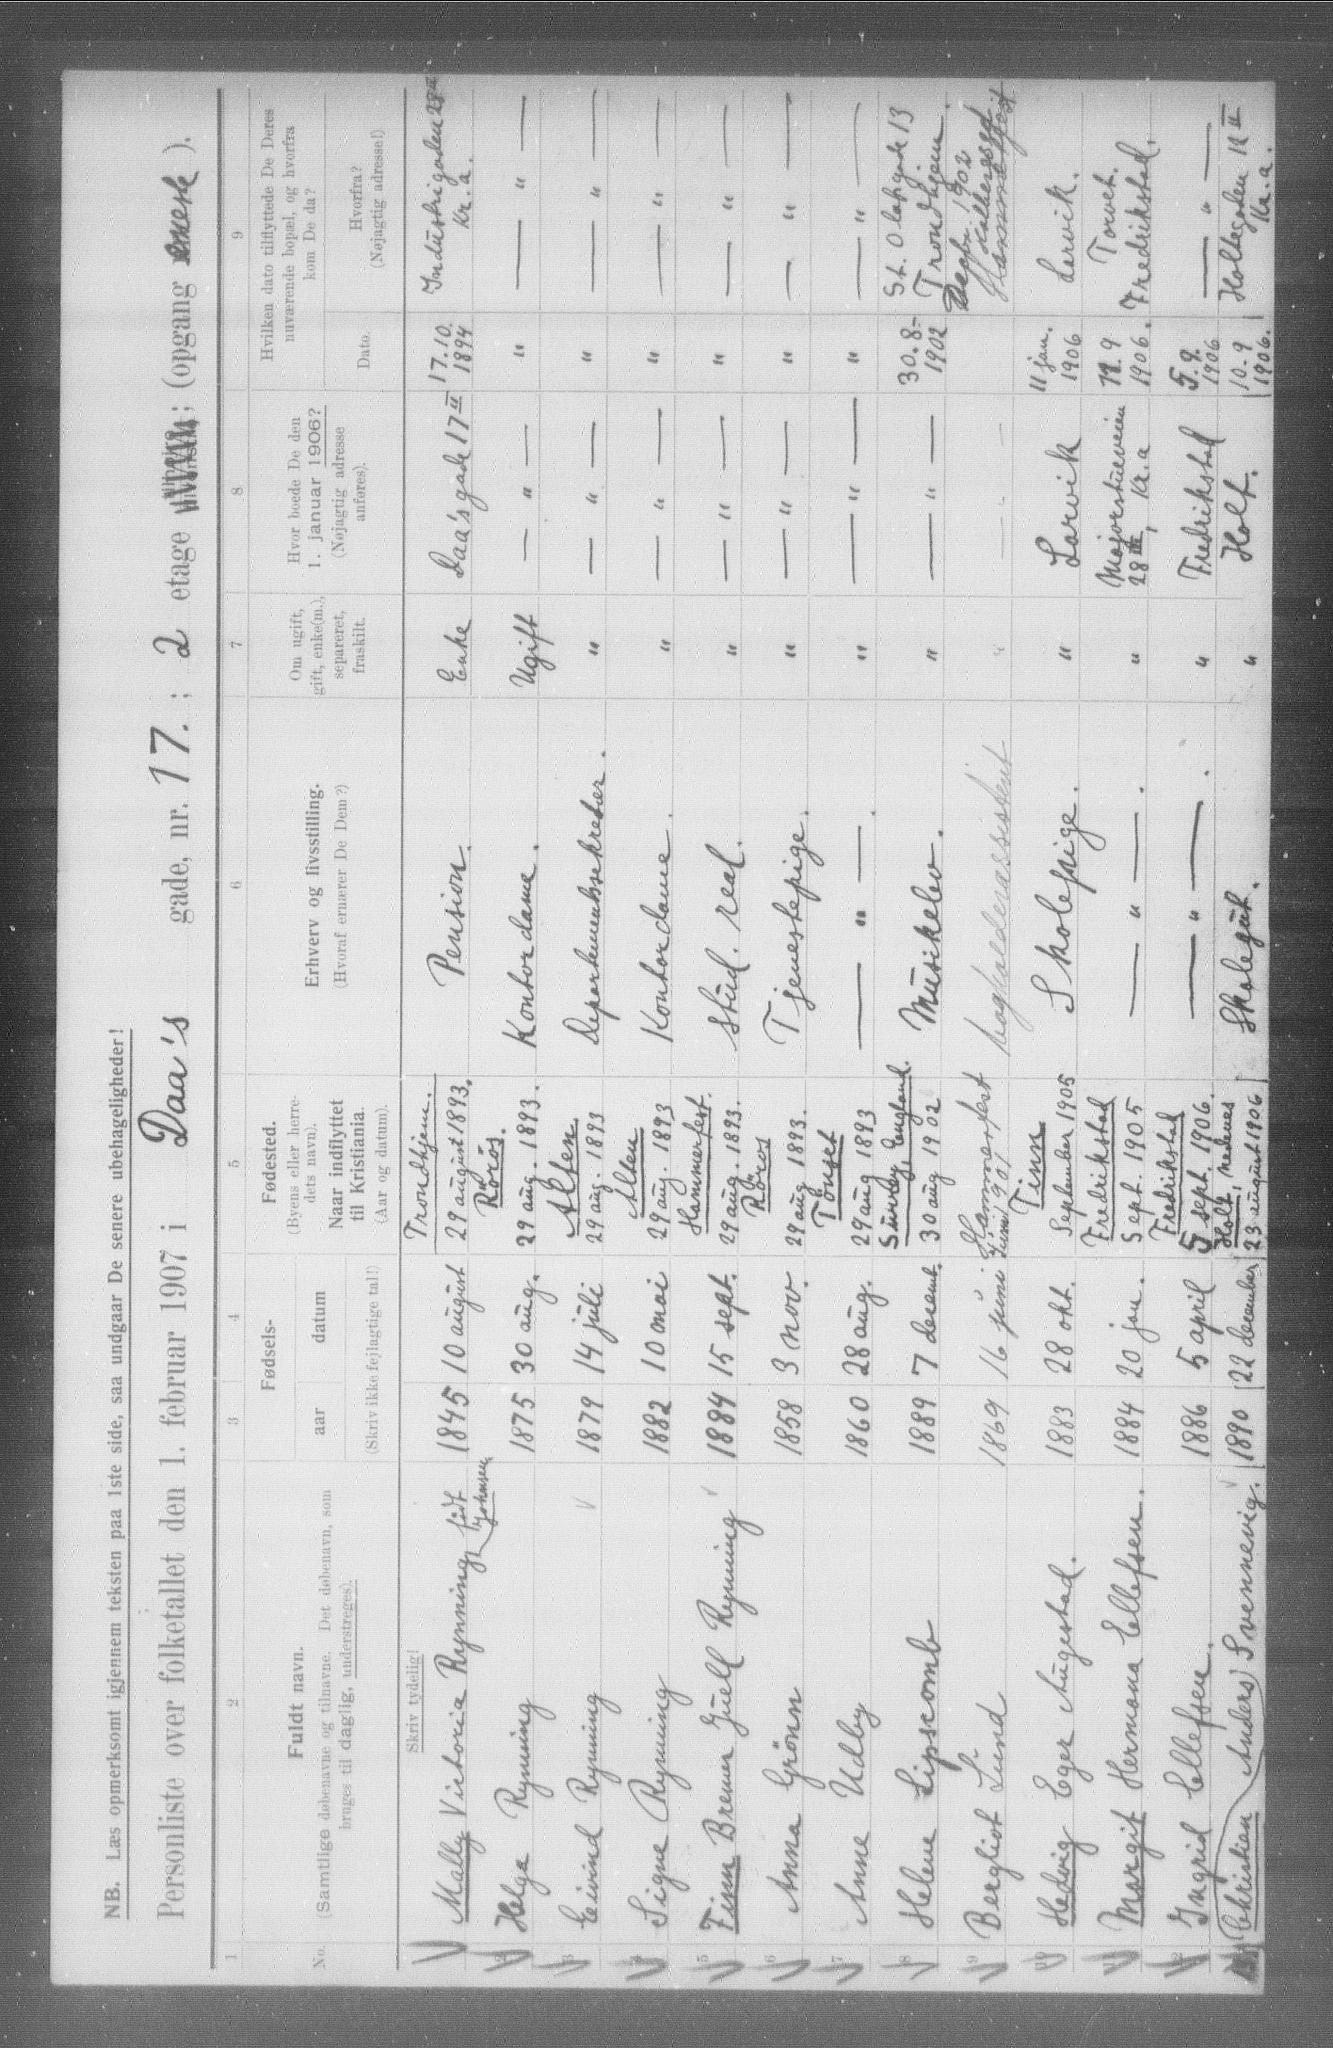 NB. Læs opmerksomt igjennem teksten paa 1ste side, saa undgaar De senere ubehageligheder!
Personliste over folketallet den 1. februar 1907 i Daa's gade, nr. 17. ; 2 etage (opgang ).
1 2 3 4 5 6 7 8 9
No.
Fuldt navn.
(Samtlige døbenavne og tilnavne. Det døbenavn, som
bruges til daglig, understreges).
Fødsels-
aar datum
(Skriv ikke fejlagtige tal!)
Fødested.
(Byens eller herre-
dets navn).
Naar indflyttet
til Kristiania.
(Aar og datum).
Erhverv og livsstilling.
(Hvoraf ernærer De Dem?)
Om ugift,
gift, enke(m.),
separeret,
fraskilt.
Hvor boede De den
1. januar 1906?
(Nøjagtig adresse
anføres).
Hvilken dato tilflyttede De Deres
nuværende bopæl, og hvorfra
kom De da?
Dato.
Hvorfra?
(Nøjagtig adresse!)
Skriv tydelig!
Mally Victoria Rynning født Johansen 1845 10 august Trondhjem. 29 august 1893. Pension. Enke Daa's gade 17 II 17.10. 1894 Industrigaden Kr.a.
2 Helga Rynning 1875 30 aug. Rörös. 29 aug. 1893. Kontordame. Ugift — " — " — " —
3 Eivind Rynning 1879 14 juli Alten 29 aug. 1893 Departementssekretær. " — " — " — " —
4 Signe Rynning 1882 10 mai Alten 29 aug. 1893 Kontordame. " — " — " — " —
5 Finn Bremer Juell Rynning 1884 15 sept. Hammerfest. 29 aug. 1893. Stud. real. " — " — " — " —
6 Anna Grönn 1858 3 nov. Röros 29 aug 1893. Tjenestepige. " — " — " — " —
7 Anne Udby 1860 28 aug. Tönset 29 aug 1893 — " — . " — " — " — " —
8 Helene Lipscomb 1889 7 decemt. Surrey, England. 30 aug 1902 Musikelev. " — " — 30.8.- 1902 St. Olafsgade 13 Trondhjem.
9 Bergliot Lund 1869 16 juni Hammerfest Juni 901 bogholderassistent " — " — 1902 Hammerfest
10 Hedvig Eger Augestad. 1883 28 okt. Tinn September 1905 Skolepige. " Larvik 11 jan. 1906 Larvik.
11 Margit Hermana Ellefsen. 1884 20 jan. Fredrikstad Sept. 1905 — " — . " Majorstueveien 28 III, Kr.a 9 1906. Torvet. Fredrikstad.
12 Ingrid Ellefsen. 1886 5 april Fredrikstad 5 sept. 1906. — " — . " Fredrikstad 5.9. 1906 — " —
Christian Anders Svennevig. 1890 22 december Holt, Nedenes 23 august 1906 Skolegut. " Holt. 10.9 1906. Holbegaden II Kr.a.